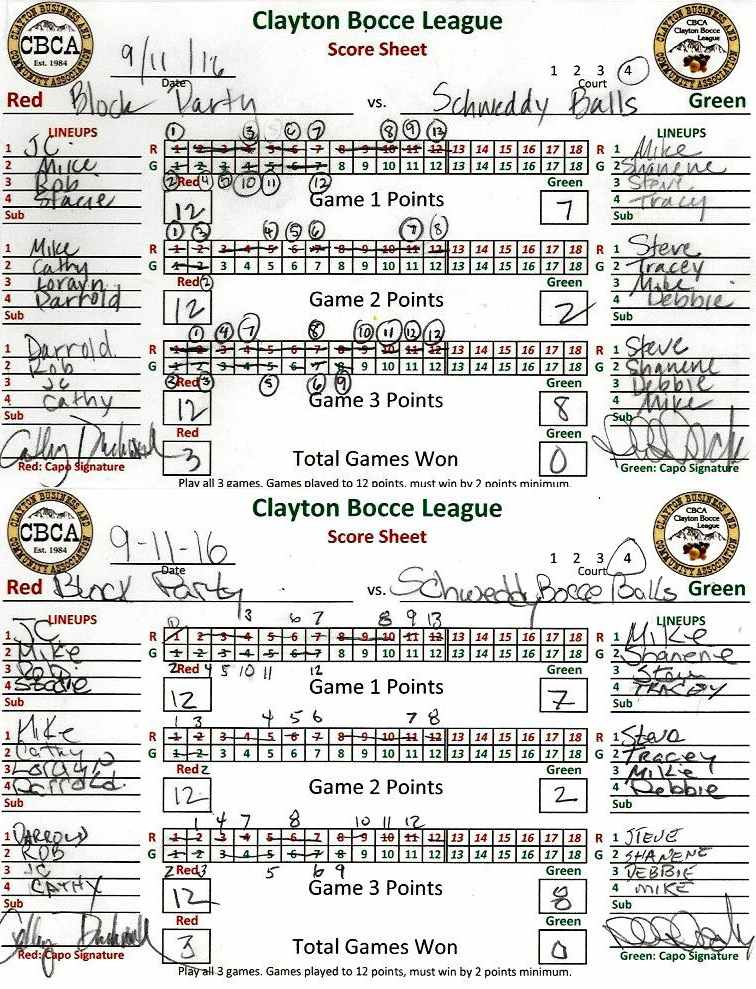 Clayton Bocce League
Score Sheet
CLAYTON BUSINESS AND COMMUNITY ASSOCIATION
CBCA
Est. 1984
CBCA
Clayton Bocce
League
9/11/16
Date
1 2 3 4
Court
Red Block Party vs. Schweddy Balls Green
LINEUPS
1 JC
2 Mike
3 Bob
4 Stacie
Sub
1 3 6 7 8 9 13
R 1 2 3 4 5 6 7 8 9 10 11 12 13 14 15 16 17 18 R
G 1 2 3 4 5 6 7 8 9 10 11 12 13 14 15 16 17 18 G
2 4 5 10 11 12
Red
12
Game 1 Points
Green
7
LINEUPS
1 Mike
2 Shanene
3 Steve
4 Tracy
Sub
1 Mike
2 Cathy
3 Lorayn
4 Darrold
Sub
1 3 4 5 6 7 8
R 1 2 3 4 5 6 7 8 9 10 11 12 13 14 15 16 17 18 R
G 1 2 3 4 5 6 7 8 9 10 11 12 13 14 15 16 17 18 G
2
Red
12
Game 2 Points
Green
2
1 Steve
2 Tracey
3 Mike
4 Debbie
Sub
1 Darrold
2 Rob
3 JC
4 Cathy
Sub
1 4 7 8 10 11 12 12
R 1 2 3 4 5 6 7 8 9 10 11 12 13 14 15 16 17 18 R
G 1 2 3 4 5 6 7 8 9 10 11 12 13 14 15 16 17 18 G
2 3 5 6 9
Red
12
Game 3 Points
Green
8
1 Steve
2 Shanene
3 Debbie
4 Mike
Sub
Red
3
Total Games Won
Green
0
Red: Capo Signature
Green: Capo Signature
Play all 3 games. Games played to 12 points, must win by 2 points minimum.
Clayton Bocce League
Score Sheet
CLAYTON BUSINESS AND COMMUNITY ASSOCIATION
CBCA
Est. 1984
CBCA
Clayton Bocce
League
9-11-16
Date
1 2 3 4
Court
Red Block Party vs. Schweddy Bocce Balls Green
LINEUPS
1 JC
2 Mike
3 Rob
4 Stacie
Sub
1 3 6 7 8 9 13
R 1 2 3 4 5 6 7 8 9 10 11 12 13 14 15 16 17 18 R
G 1 2 3 4 5 6 7 8 9 10 11 12 13 14 15 16 17 18 G
2 4 5 10 11 12
Red
12
Game 1 Points
Green
7
LINEUPS
1 Mike
2 Shanene
3 Steve
4 TRACEY
Sub
1 Mike
2 Cathy
3 Lorayn
4 Darrold
Sub
1 3 4 5 6 7 8
R 1 2 3 4 5 6 7 8 9 10 11 12 13 14 15 16 17 18 R
G 1 2 3 4 5 6 7 8 9 10 11 12 13 14 15 16 17 18 G
2
Red
12
Game 2 Points
Green
2
1 Steve
2 Tracey
3 Mike
4 Debbie
Sub
1 DARROLD
2 ROB
3 JC
4 CATHY
Sub
1 4 7 8 10 11 12
R 1 2 3 4 5 6 7 8 9 10 11 12 13 14 15 16 17 18 R
G 1 2 3 4 5 6 7 8 9 10 11 12 13 14 15 16 17 18 G
2 3 5 6 9
Red
12
Game 3 Points
Green
8
1 STEVE
2 SHANENE
3 DEBBIE
4 MIKE
Sub
Red
3
Total Games Won
Green
0
Red: Capo Signature
Green: Capo Signature
Play all 3 games. Games played to 12 points, must win by 2 points minimum.